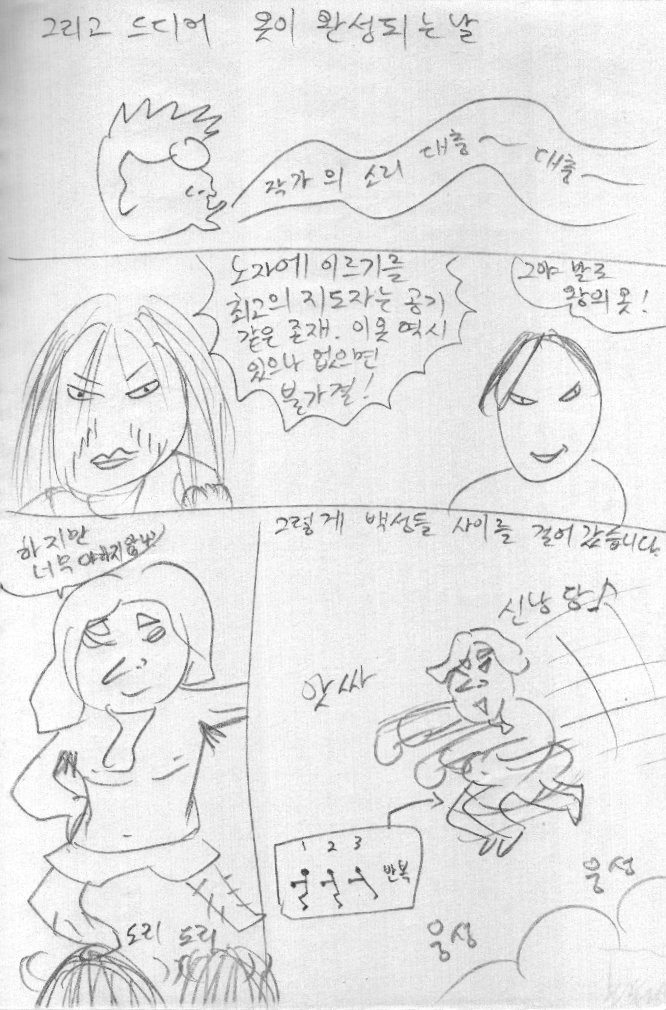 그리고 드디어 옷이 완성되는 날
작가의 소리 대충~ 대충~
노자에 이르기를
최고의 지도자는 공기
같은 존재. 이옷 역시
있으나 없으면
불가결!
그야 말로
왕의 옷!
하지만
너무 야하지않나?
그렇게 백성들 사이를 걸어 갔습니다.
신난당♪
앗싸
1 2 3
반복
웅성
웅성
도리 도리